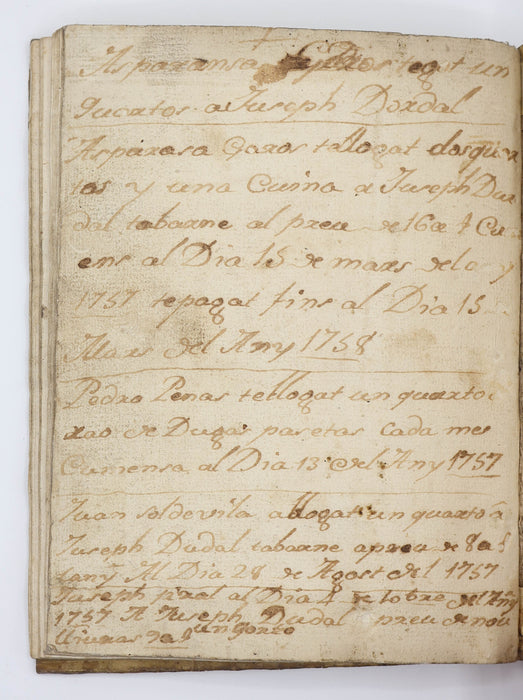 Asparansa Gros te llogat un
Quartos a Juseph Dordal
Asparasa Garos tallogat dos quar
tos y una Cuina a Juseph Dur
dal tabarne al preu de 16 ₶ Cu
ens al Dia 15 de mars de lo y
1757 te pagat fins al Dia 15
Mars del Any 1758
Pedro Penas te llogat un quarto
de Dugas pasetas cada mes
Cumensa al Dia 13 del Any 1757
Juan Soldevila allogat un quarto a
Juseph Dudal tabarne a preu de 8
lany Al Dia 28 de Agost del 1757
Juseph piral al Dia 4 de lotre del Añy
1757 A Juseph Dudal preu de nou
lliuras un Gorto